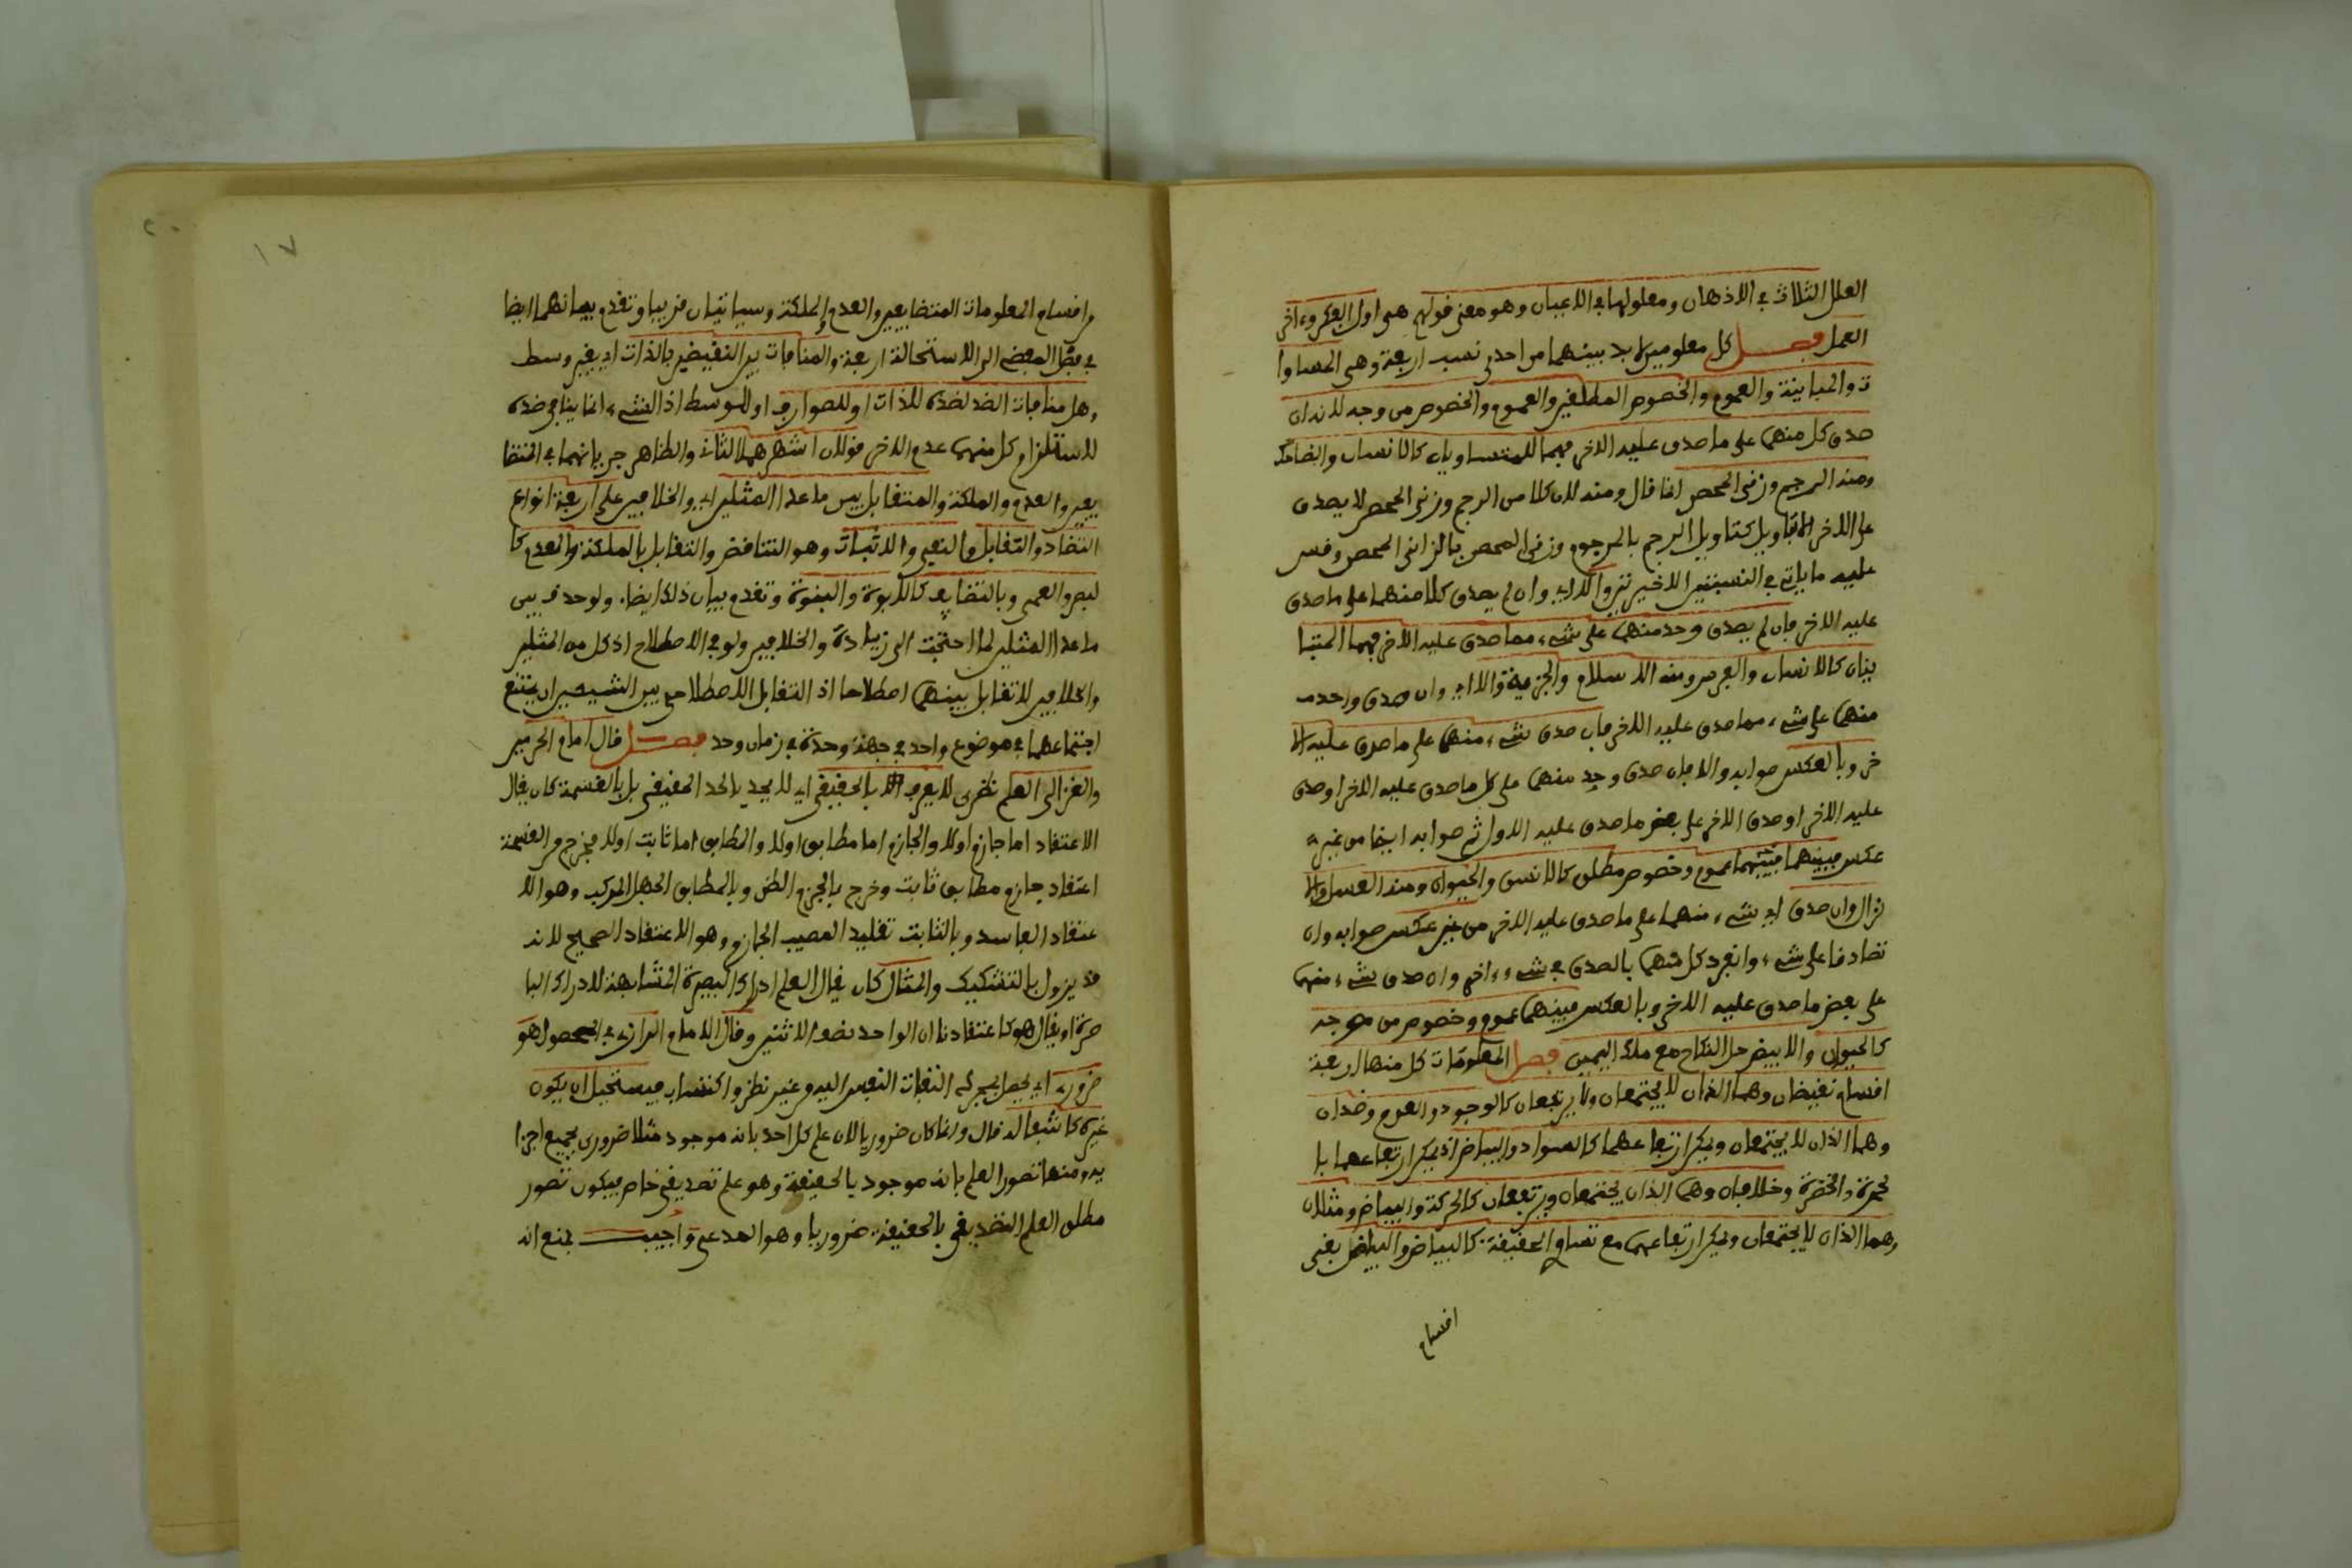 العلل الثلاث في الاذهان ومعلولها في الاعيان وهو معنى قولهم هي اول الفكر وءاخر
العمل فصل كل معلومين لا بد بينهما من احدى نسب اربعة وهي المساوا
ة والمباينة والعموم والخصوص المطلقين والعموم والخصوص من وجه لانه ان
صدق كل منهما على ما صدق عليه الاخر فهما المتساويان كالانسان والضاحك
ومنه الرجم وزنى المحصن انما قال ومنه لان كلا من الرجم وزنى المحصن لا يصدق
على الاخر الا بتاويل كتاويل الرجم بالمرجوم وزنى المحصن بالزاني المحصن وقس
عليه ما ياتي في النسبتين الاخيرتين والا اي وان لم يصدق كلا منهما على ما صدق
عليه الاخر فان لم يصدق وحد منهما على شيء مما صدق عليه الاخر فهما المتبا
ينان كالانسان والفرس ومنه الاسلام والجزية والا اي وان صدق واحد
منهما على شيء مما صدق عليه الاخر فان صدق شيء منهما على ما صدق عليه الا
خر وبالعكس صوابه والا فان صدق وحد منهما على كل ما صدق عليه الاخر اوصدق
عليه الاخر اوصدق الاخر على بعض ما صدق عليه الاول ثم صوابه ايضا من غير
عكس فبينهما عموم وخصوص مطلق كالانسن والحيوان ومنه الغسل والا
نزال وان صدق اي شيء منهما على ما صدق عليه الاخر من غير عكس صوابه وان
تصادقا على شيء وانفرد كل منهما بالصدق في شيء ءاخر وان صدق شيء منهما
على بعض ما صدق عليه الاخر وبالعكس فبينهما عموم وخصوص من وجه
كالحيوان والابيض حل النكاح مع ملك اليمين فصل المعلومات كل منها اربعة
اقسام نقيضان وهما الذان لا يجتمعان ولا يرتفعان كالوجود والعدم وضدان
وهما الذان لا يجتمعان ويمكن ارتفاعهما كالسواد والبياض اذ يمكن ارتفاعهما با
لحمرة والخضرة وخلافان وهما الذان يجتمعان ويرتفعان كالحركة والبياض ومثلان
وهما الذان لا يجتمعان ويمكن ارتفاعهما مع تساوي الحقيقة كالبياض والبياض بقى
اقسام
١٧
٢٠
واقسام المعلومات المتضايفين والعدم والملكة وسياتيان قريبا وتقدم بيانهما ايضا
في المفضى الى الاستحالة اربعة والمنافات بين النقيضين بالذات اي بغير وسط
وهل منافات الضد لضده للذات او للصوارف او للوسط اذ الشيء انما ينافي ضده
لاستلزام كل منهما عدم الاخر قولان اشهرهما الثاني والظاهر جريانهما في المتضا
يفين والعدم والملكة والمتقابل بين ما عدا المثلين اي والخلافين على اربعة انواع
التضاد والتقابل بالنفي والاثبات وهو التناقض والتقابل بالملكة والعدم كا
لبصر والعمى وبالتضايف كالابوة والبنوة وتقدم بيان ذلك ايضا ولو حذف بين
ما عدا المثلين لما احتجت الى زيادة والخلافين ولو في الاصطلاح اذ كل من المثلين
والخلافين لا تقابل بينهما اصطلاحا اذ التقابل الاصطلاحي بين الشيئين ان يمتنع
اجتماعهما في موضوع واحد في جهة وحدة في زمان وحد فصل قال امام الحرمين
والغزالي العلم نظري لا يعرف بالحقيقي اي لا يحد بالحد الحقيقي بل بالقسمة كان يقال
الاعتقاد اما جازم او لا والجازم اما مطابق او لا والمطابق اما ثابت او لا فخرج من القسمة
اعتقاد جازم مطابق ثابت وخرج بالجزم الظن وبالمطابق الجهل المركب وهو الا
عتقاد الفاسد وبالثابت تقليد المصيب الجازم وهو الاعتقاد الصحيح لانه
قد يزول بالتشكيك والمثال كان يقال العلم ادراك البصيرة المشابهة لادراك البا
صرة او يقال هو كاعتقادنا ان الواحد نصف الاثنين وقال الامام الرازي في المحصول هو
ضروري اي يحصل بمجرد التفات النفس اليه من غير نظر واكتساب فيستحيل ان يكون
غيره كاشفا له قال وانما كان ضروريا لان علم كل احد بانه موجود مثلا ضروري بجميع اجزا
يه ومنها تصور العلم بانه موجود بالحقيقة وهو علم تصديقي خاص فيكون تصور
مطلق العلم التصديقي بالحقيقة ضروريا وهو المدعى واجيب بمنع انه